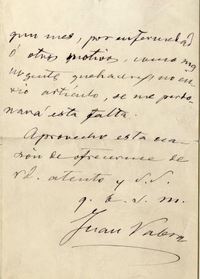 gun mes, por enfermedad
ó otros motivos, como muy
urgente quehacer, no en-
vio artículo, se me perdo-
nará esta falta.
Aprovecho esta oca-
sión de ofrecerme de
Vd. atento y S. S.
q. b. s. m.
Juan Valera